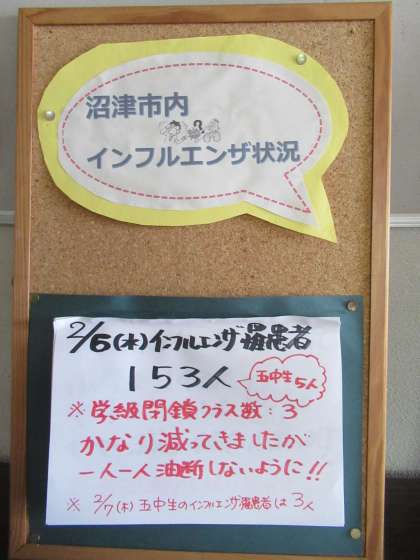 沼津市内
インフルエンザ状況
2/6(水)インフルエンザ罹患者
153人
五中生5人
※学級閉鎖クラス数:3
かなり減ってきましたが
一人一人油断しないように!!
※2/7(木)五中生のインフルエンザ罹患者は3人